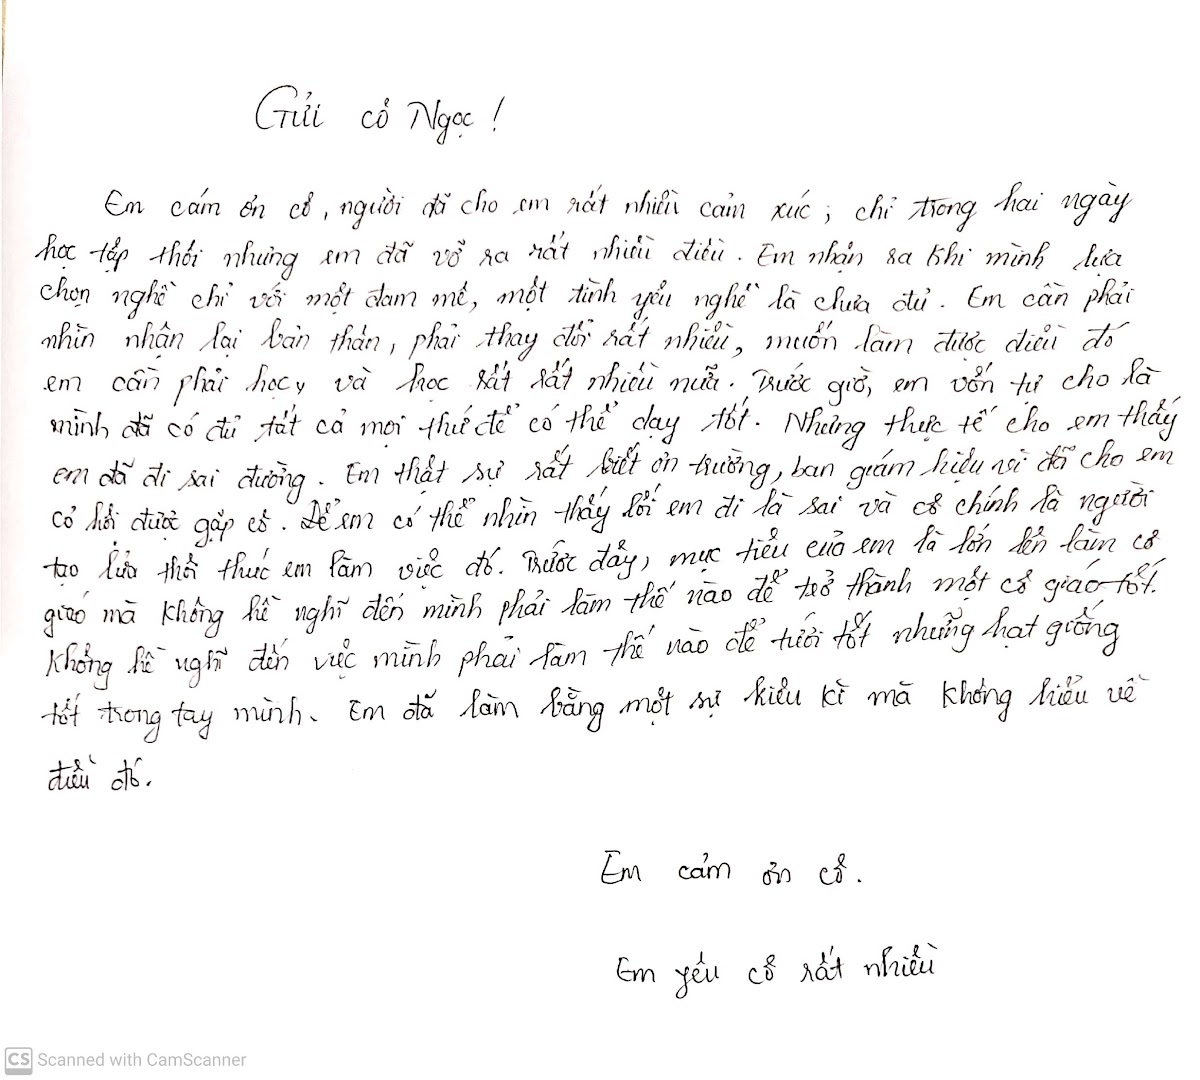 Gửi cô Ngọc !
Em cám ơn cô, người đã cho em rất nhiều cảm xúc, chỉ trong hai ngày
học tập thôi nhưng em đã vỡ ra rất nhiều điều. Em nhận ra khi mình lựa
chọn nghề chỉ với một đam mê, một tình yêu nghề là chưa đủ. Em cần phải
nhìn nhận lại bản thân, phải thay đổi rất nhiều, muốn làm được điều đó
em cần phải học, và học rất rất nhiều nữa. Trước giờ, em vốn tự cho là
mình đã có đủ tất cả mọi thứ để có thể dạy tốt. Nhưng thực tế cho em thấy
em đã đi sai đường. Em thật sự rất biết ơn trường, ban giám hiệu vì đã cho em
cơ hội được gặp cô. Để em có thể nhìn thấy lối em đi là sai và cô chính là người
tạo lửa thôi thúc em làm việc đó. Trước đây, mục tiêu của em là lớn lên làm cô
giáo mà không hề nghĩ đến mình phải làm thế nào để trở thành một cô giáo tốt.
Không hề nghĩ đến việc mình phải làm thế nào để tưới tốt những hạt giống
tốt trong tay mình. Em đã làm bằng một sự hiếu kì mà không hiểu về
điều đó.
Em cảm ơn cô.
Em yêu cô rất nhiều
CS Scanned with CamScanner